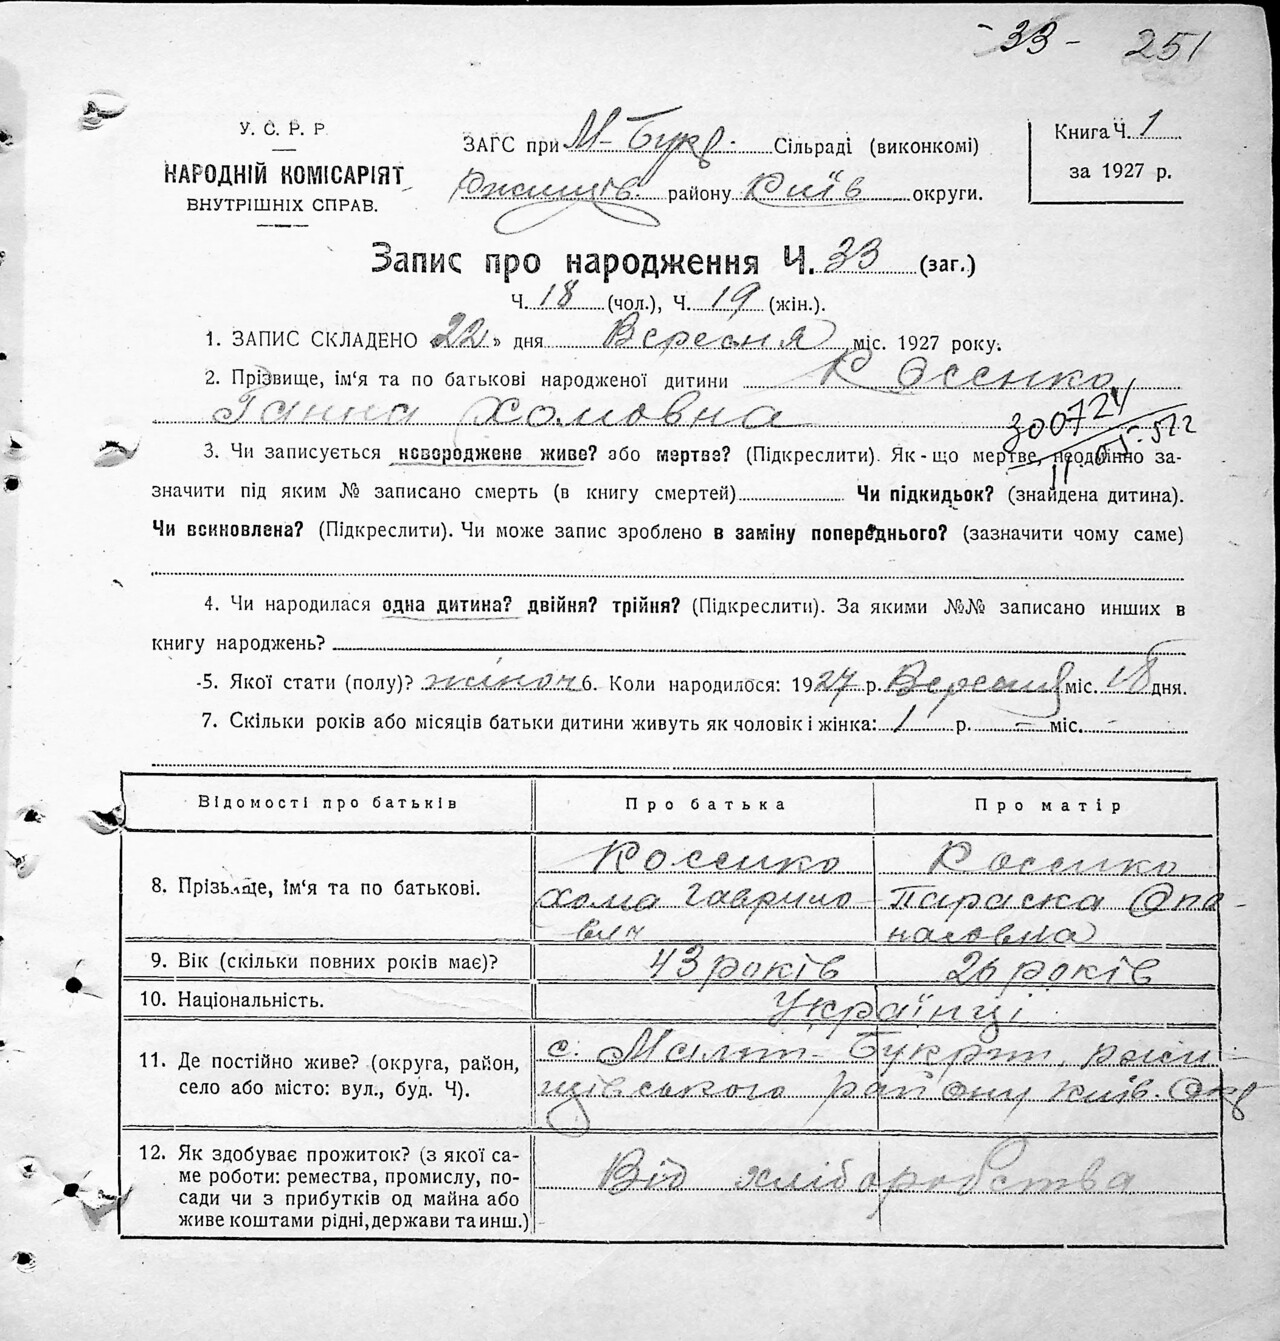 - 33 - 251
У. С. Р. Р.
НАРОДНІЙ КОМІСАРІЯТ
ВНУТРІШНІХ СПРАВ.
ЗАГС при М-Букр. Сільраді (виконкомі)
Ржищів. району Київ округи.
Книга Ч. 1
за 1927 р.
Запис про народження Ч. 33 (заг.)
Ч. 18 (чол.), Ч. 19 (жін.).
1. ЗАПИС СКЛАДЕНО 22 » дня Вересня міс. 1927 року.
2. Прізвище, ім'я та по батькові народженої дитини Косенко
Ганна Хомовна
300724
3. Чи записується новороджене живе? або мертве? (Підкреслити). Як-що мертве, неодмінно за-
значити під яким № записано смерть (в книгу смертей) Чи підкидьок? (знайдена дитина).
Чи всиновлена? (Підкреслити). Чи може запис зроблено в заміну попереднього? (зазначити чому саме)
4. Чи народилася одна дитина? двійня? трійня? (Підкреслити). За якими №№ записано инших в
книгу народжень?
5. Якої стати (полу)? жіноч 6. Коли народилося: 1927 р. Вересня міс. 18 дня.
7. Скільки років або місяців батьки дитини живуть як чоловік і жінка: 1 р. – міс. –
Відомості про батьків Про батька Про матір
8. Прізвище, ім'я та по батькові.
Косенко
Хома Гаврило-
вич
Косенко
Параска Опа-
насовна
9. Вік (скільки повних років має)? 43 років 26 років
10. Національність. Українці
11. Де постійно живе? (округа, район,
село або місто: вул., буд. Ч).
с. Малий-Букрин, ржи-
щівського району Київ. Окр
12. Як здобуває прожиток? (з якої са-
ме роботи: ремества, промислу, по-
сади чи з прибутків од майна або
живе коштами рідні, держави та инш.)
Від хліборобства